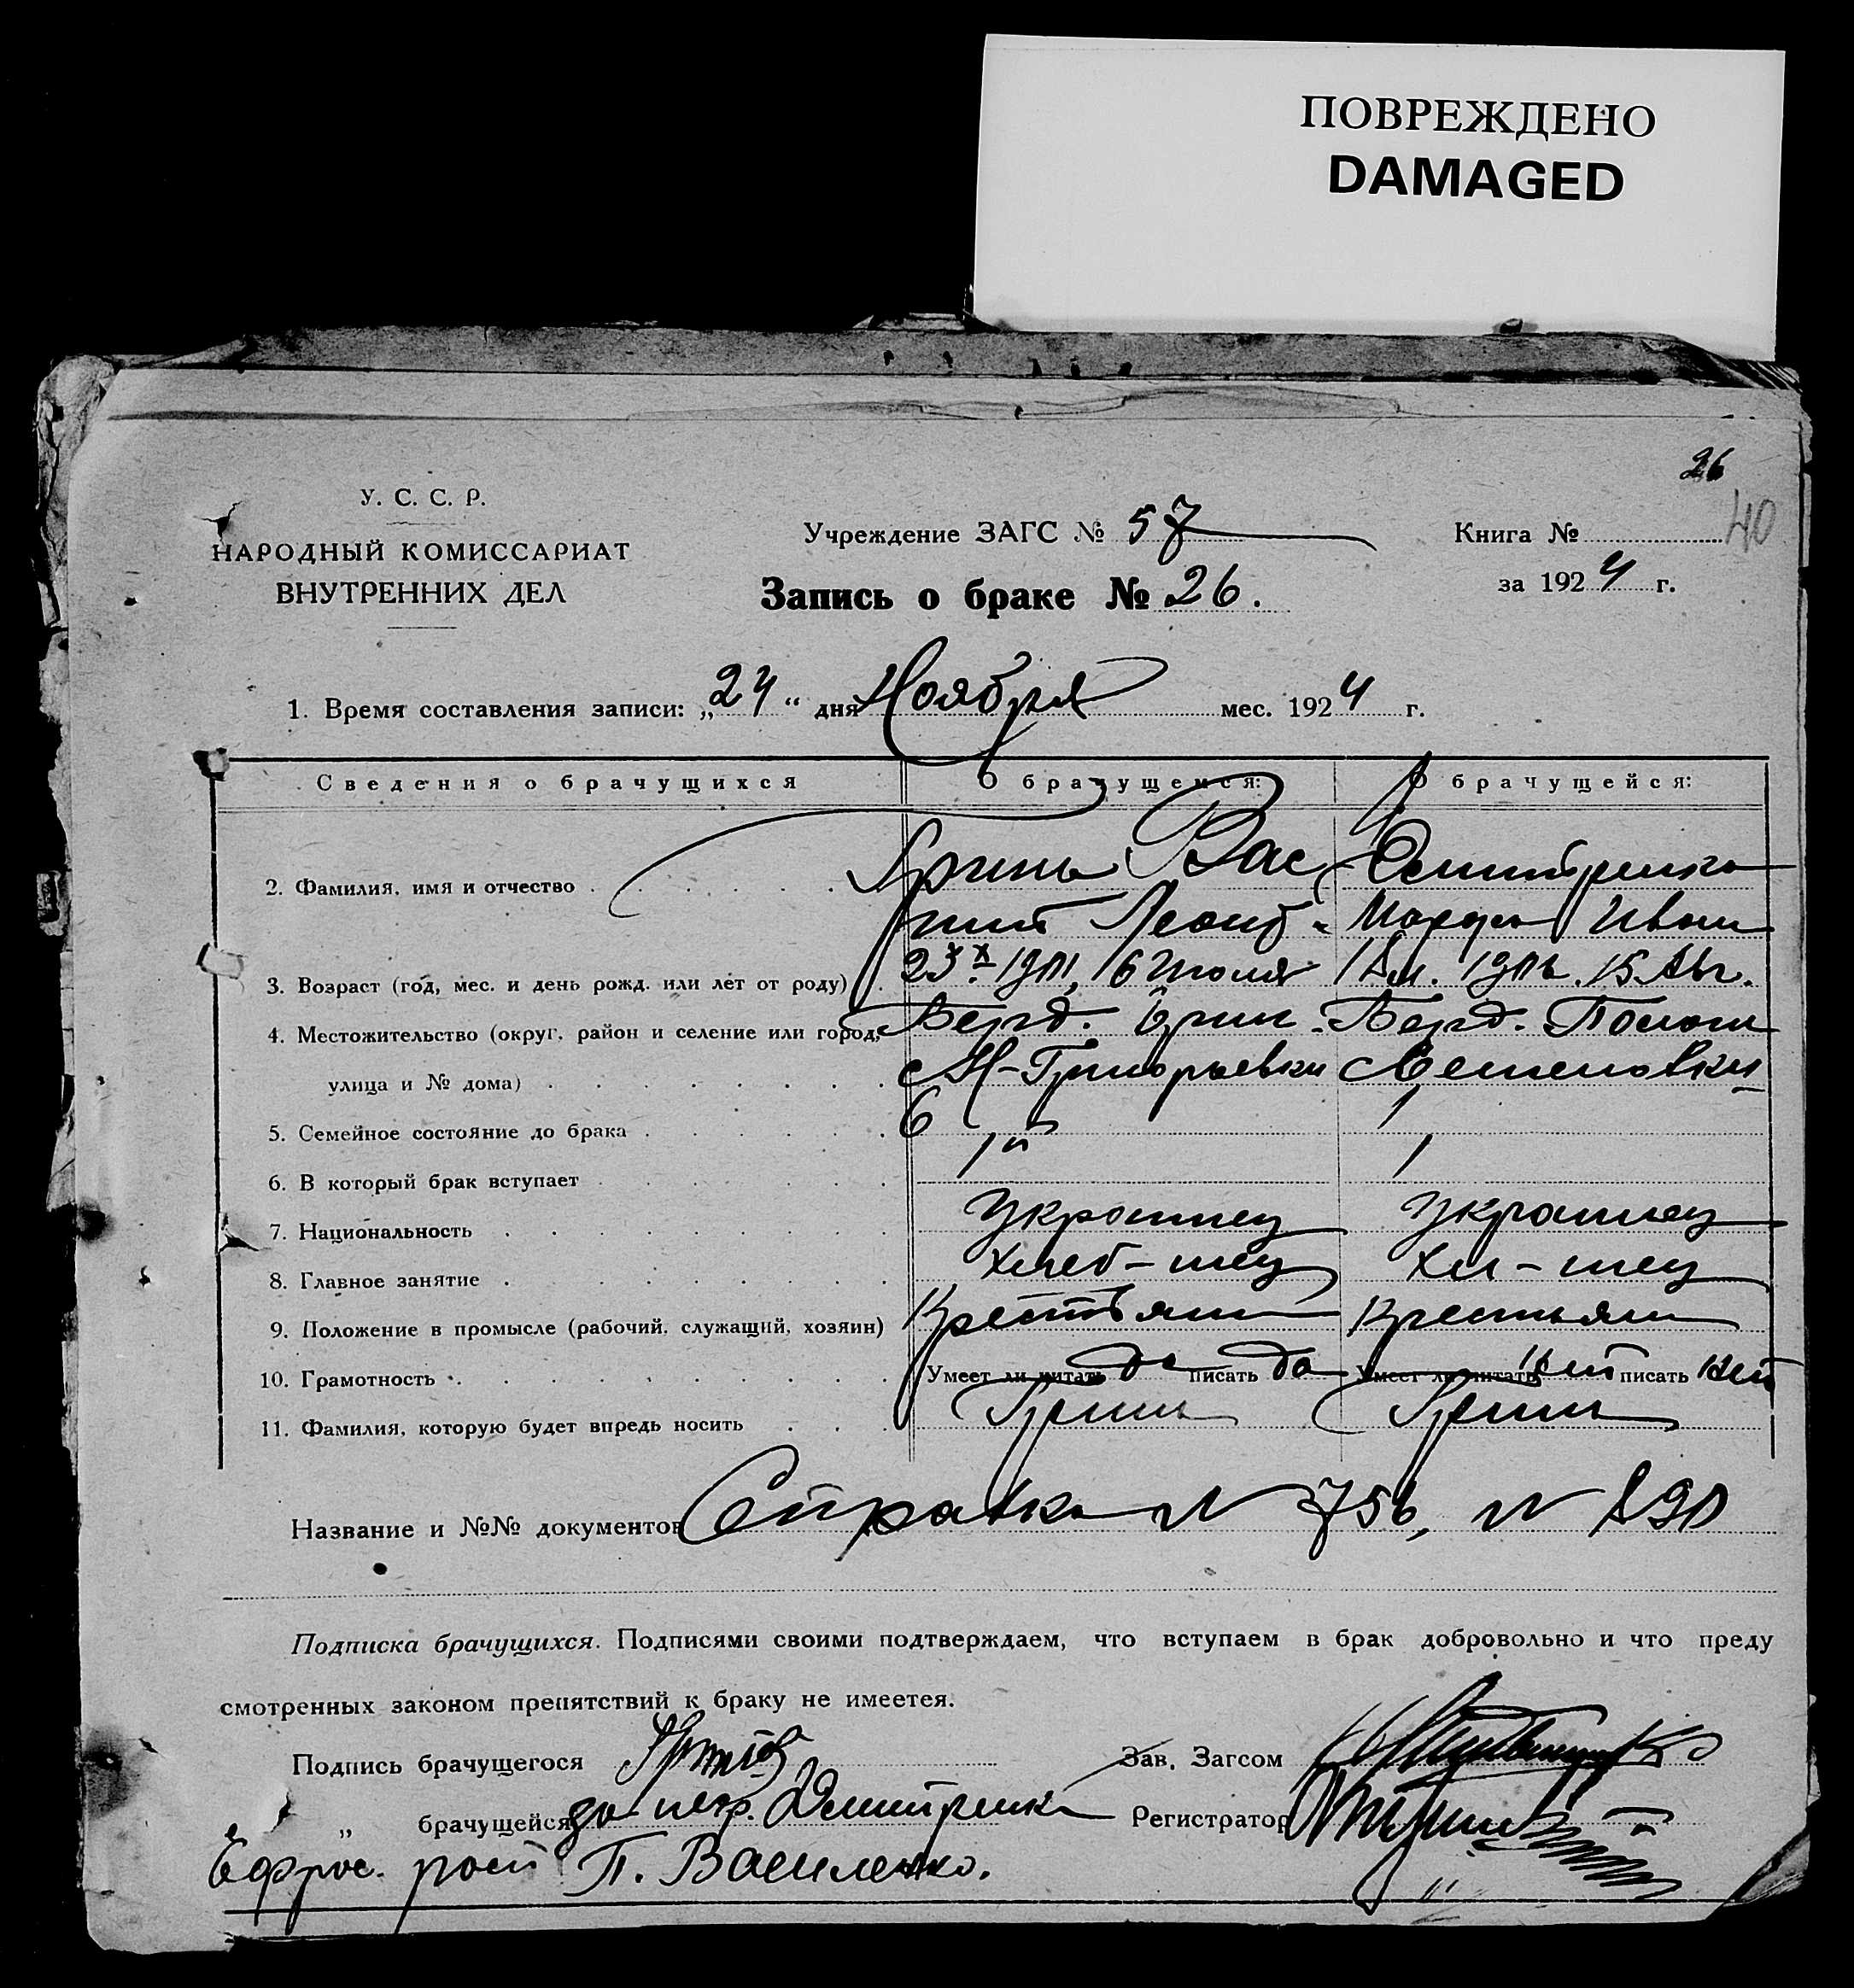 ПОВРЕЖДЕНО
DAMAGED
26
40
У. С. С. Р.
НАРОДНЫЙ КОМИССАРИАТ
ВНУТРЕННИХ ДЕЛ
Учреждение ЗАГС № 57
Книга №
за 1924 г.
Запись о браке № 26.
1. Время составления записи: „24“ дня Ноября мес. 1924 г.
Сведения о брачущихся
О брачущемся:
О брачущейся:
2. Фамилия, имя и отчество
Гринь Вас
3. Возраст (год, мес. и день рожд. или лет от роду)
16 Июля
15 Авг.
4. Местожительство (округ, район и селение или город,
Берд.
Берд. Пологи
улица и № дома)
с Н-Григорьевки
Семеновки
5. Семейное состояние до брака
6
1
6. В который брак вступает
1й
1
7. Национальность
Украинец
Украинец
8. Главное занятие
Хлеб-шец
Хл-шец
9. Положение в промысле (рабочий, служащий, хозяин)
Крестьян
Крестьян
10. Грамотность
Умеет ли читать да писать да
Умеет ли читать нет писать нет
11. Фамилия, которую будет впредь носить
Гринь
Гринь
Название и №№ документов Справка № 756, №
Подписка брачущихся. Подписями своими подтверждаем, что вступаем в брак добровольно и что преду
смотренных законом препятствий к браку не имеетея.
Подпись брачущегося
Зав. Загсом
„ брачущейся за негр. Дмитренко
Регистратор
Ефрос. росп П. Василенко.